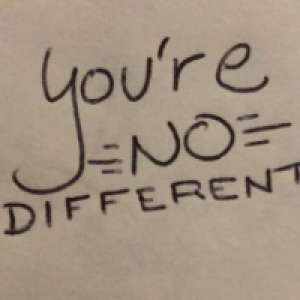 you're
NO
DIFFERENT